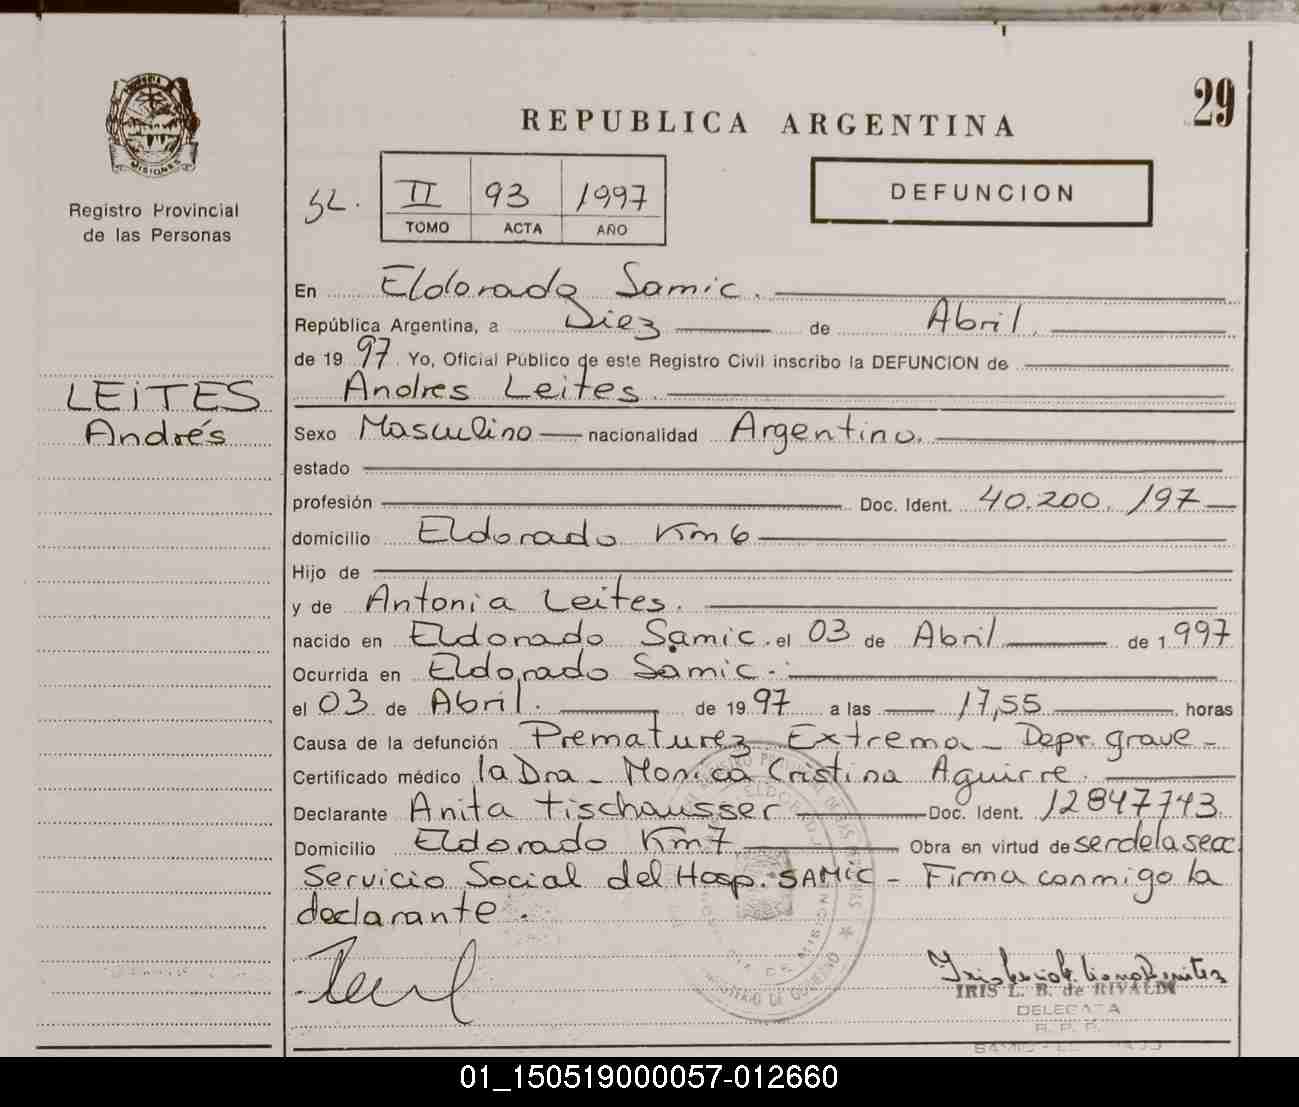 29
MISIONES
Registro Provincial
de las Personas
REPUBLICA ARGENTINA
II 93 1997
TOMO ACTA AÑO
DEFUNCION
LEITES
Andrés
En Eldorado Samic.
República Argentina, a Diez de Abril.
de 1997. Yo, Oficial Público de este Registro Civil inscribo la DEFUNCION de
Andres Leites.
Sexo Masculino nacionalidad Argentino.
estado
profesión Doc. Ident. 40.200./97
domicilio Eldorado Km 6
Hijo de
y de Antonia Leites.
nacido en Eldorado Samic. el 03 de Abril de 1997
Ocurrida en Eldorado Samic.
el 03 de Abril. de 1997 a las 17,55 horas
Causa de la defunción Prematurez Extrema - Depr. grave -
Certificado médico la Dra - Monica Cristina Aguirre.
Declarante Anita Tischausser Doc. Ident. 12847743.
Domicilio Eldorado Km 7 Obra en virtud de ser de la secc
Servicio Social del Hosp. SAMIC - Firma conmigo la
declarante.
IRIS L. B. de RIVALDI
DELEGADA
R. P. P.
01_150519000057-012660